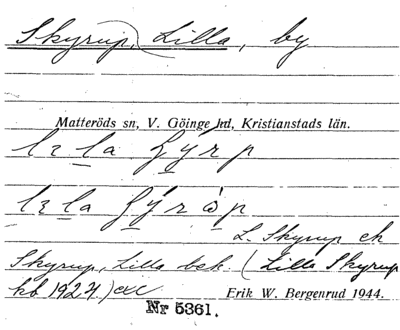 Skyrup, Lilla, by
Matteröds sn, V. Göinge hd, Kristianstads län.
L. Skyrup ek
Skyrup, Lilla bek. (Lilla Skyrup
kb 1927.) etc
Erik W. Bergenrud 1944.
Nr 5361.